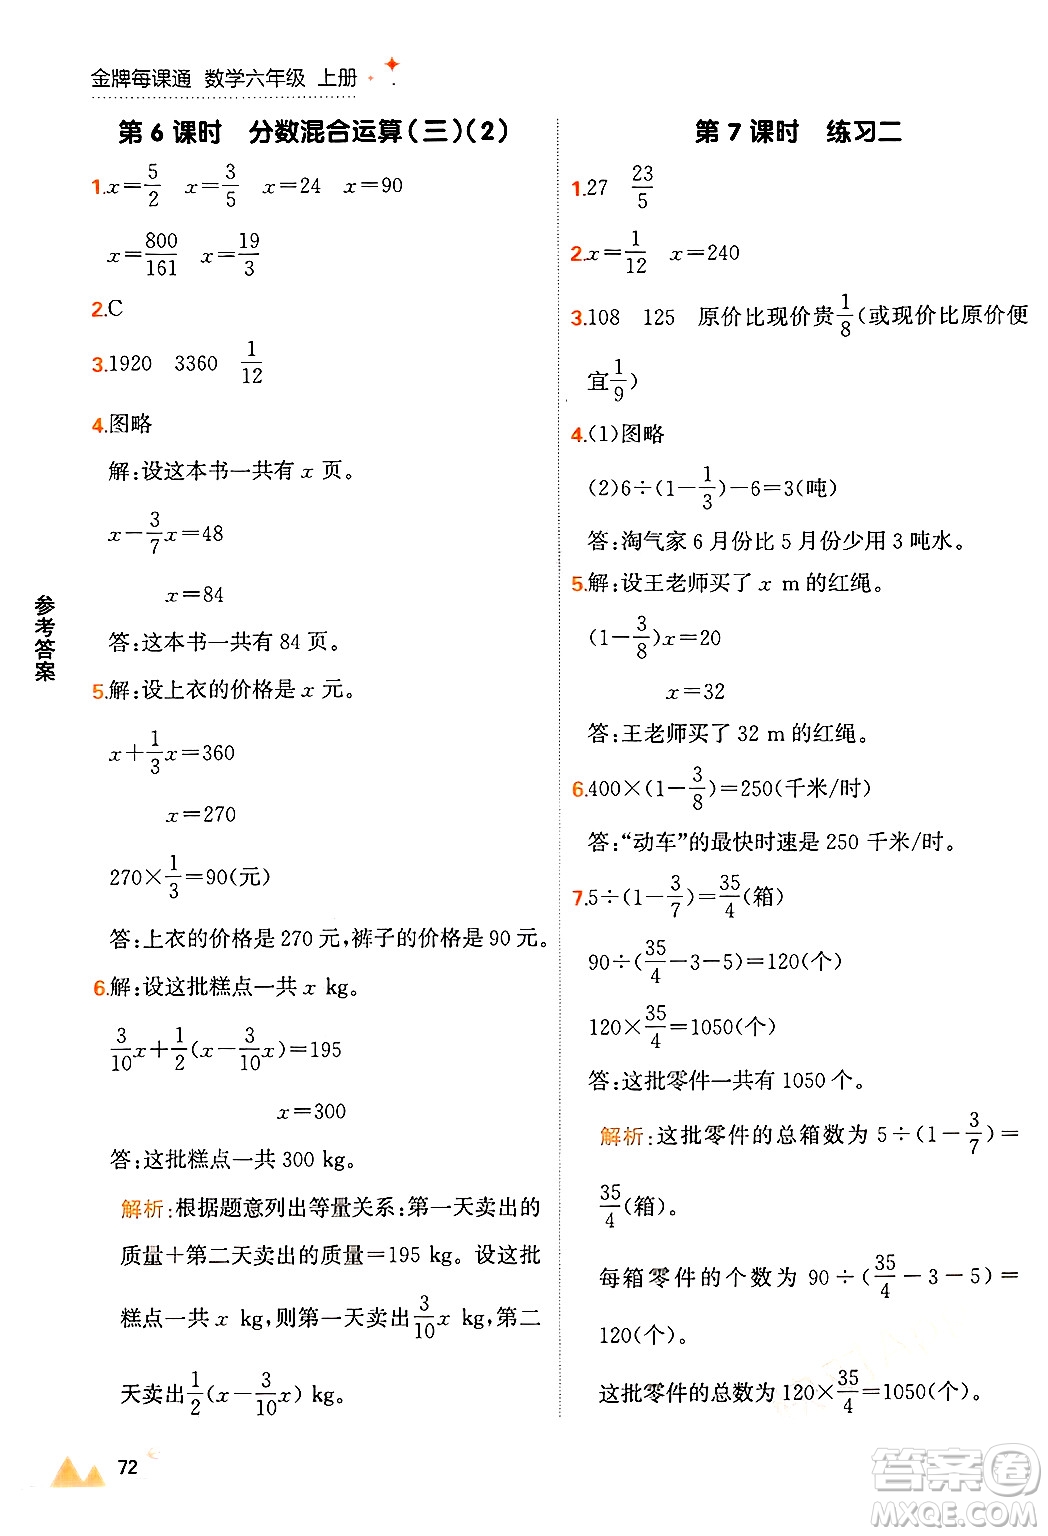 金牌每课通 数学六年级 上册
第 6 课时 分数混合运算(三)(2)
1.x=5/2 x=3/5 x=24 x=90
x=800/161 x=19/3
2.C
3.1920 3360 1/12
4.图略
解:设这本书一共有 x 页。
x-3/7x=48
x=84
答:这本书一共有 84 页。
5.解:设上衣的价格是 x 元。
x+1/3x=360
x=270
270×1/3=90(元)
答:上衣的价格是 270 元,裤子的价格是 90 元。
6.解:设这批糕点一共 x kg。
3/10x+1/2(x-3/10x)=195
x=300
答:这批糕点一共 300 kg。
解析:根据题意列出等量关系:第一天卖出的
质量+第二天卖出的质量=195 kg。设这批
糕点一共 x kg,则第一天卖出3/10x kg,第二
天卖出1/2(x-3/10x) kg。
第 7 课时 练习二
1.27 23/5
2.x=1/12 x=240
3.108 125 原价比现价贵1/8(或现价比原价便
宜1/9)
4.(1)图略
(2)6÷(1-1/3)-6=3(吨)
答:淘气家 6 月份比 5 月份少用 3 吨水。
5.解:设王老师买了 x m 的红绳。
(1-3/8)x=20
x=32
答:王老师买了 32 m 的红绳。
6.400×(1-3/8)=250(千米/时)
答:“动车”的最快时速是 250 千米/时。
7.5÷(1-3/7)=35/4(箱)
90÷(35/4-3-5)=120(个)
120×35/4=1050(个)
答:这批零件一共有 1050 个。
解析:这批零件的总箱数为 5÷(1-3/7)=
35/4(箱)。
每箱零件的个数为 90÷(35/4-3-5)=
120(个)。
这批零件的总数为 120×35/4=1050(个)。
参考答案
72
答案卷
MXQE.COM